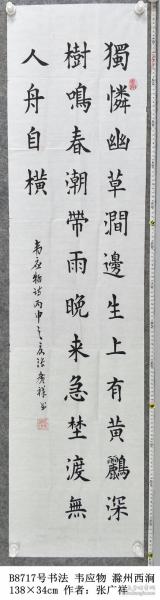 獨憐幽草澗邊生上有黃鸝深
樹鳴春潮帶雨晚来急埜渡無
人舟自橫
韦应物诗丙申之夏张广祥书
B8717号书法 韦应物 滁州西涧
138×34cm 作者：张广祥